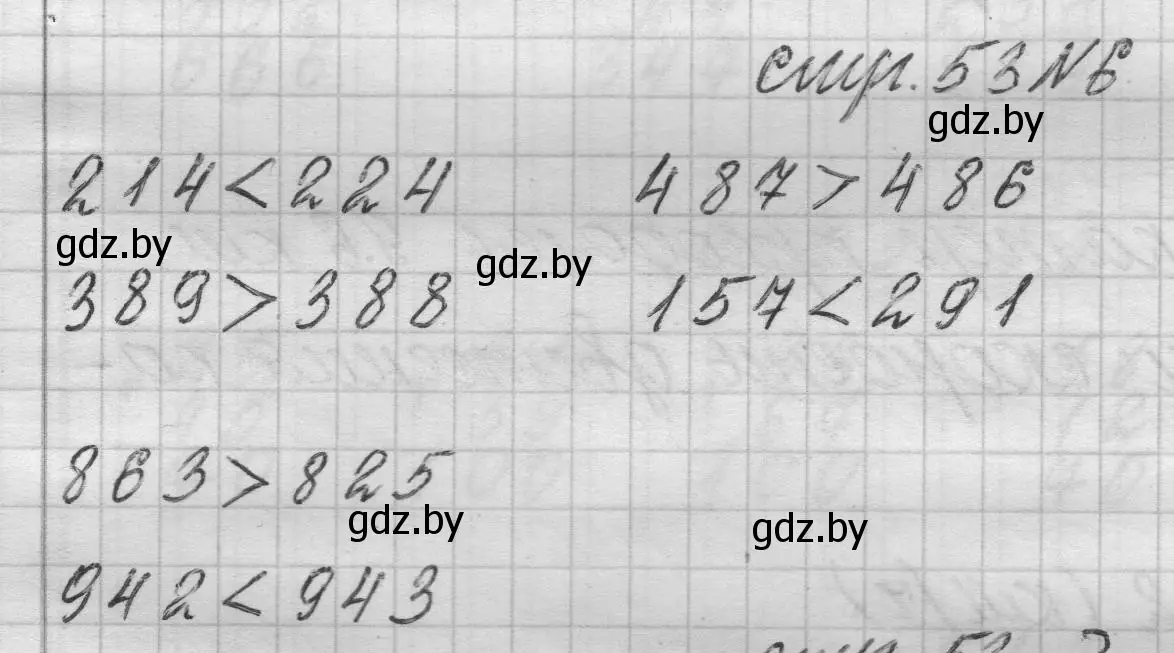 стр. 53 N 6
gdz.by
214 < 224 487 > 486
gdz.by gdz.by
389 > 388 157 < 291
863 > 825
gdz.by gdz.by
942 < 943